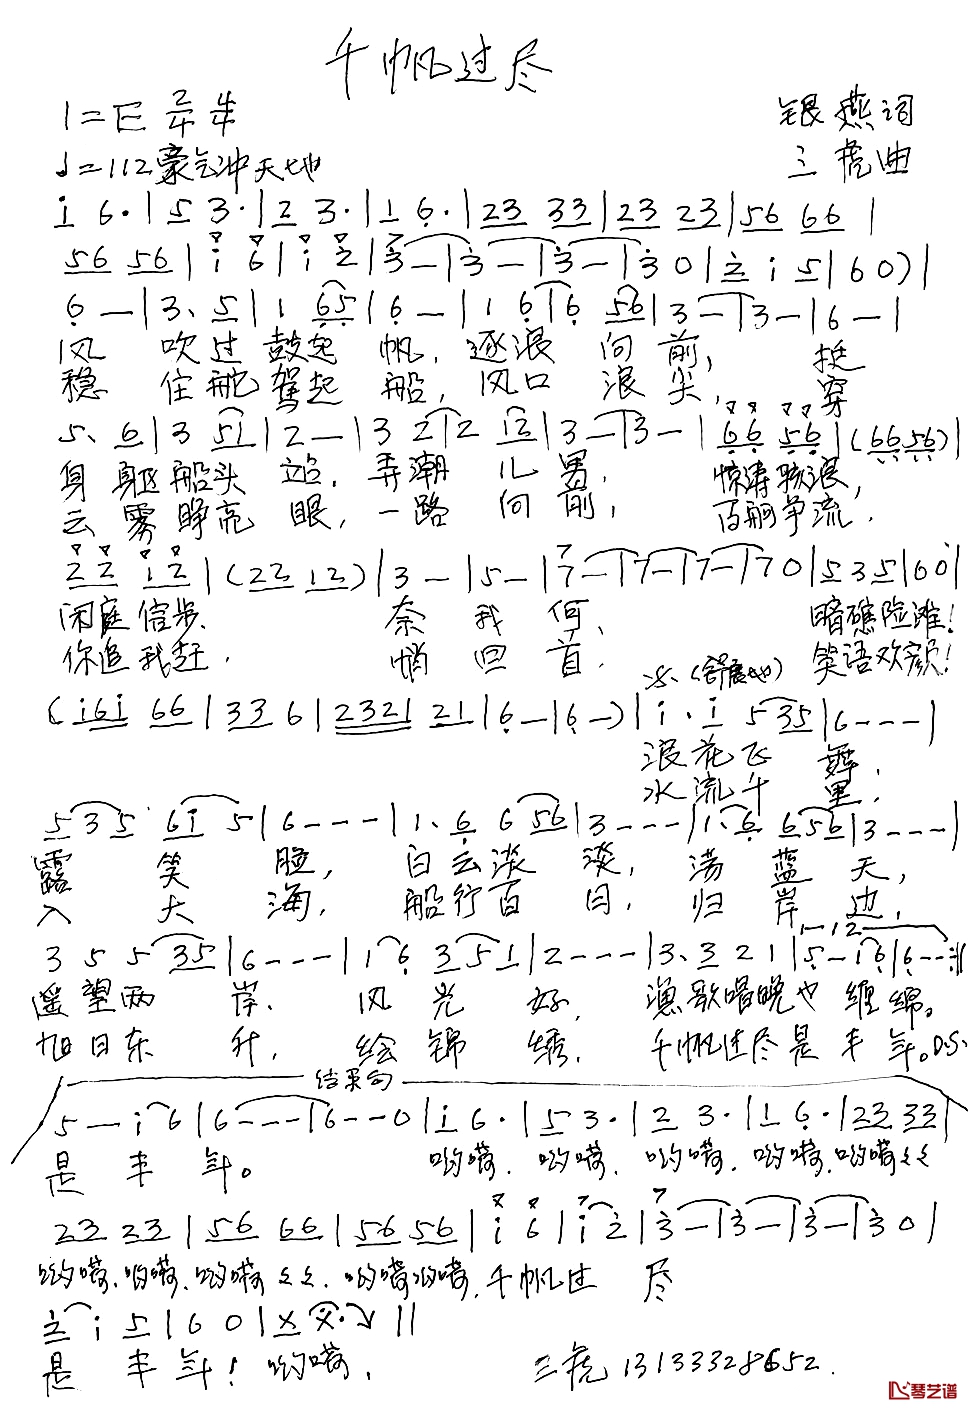 千帆过尽
1=E 2/4 4/4
银燕词
♩=112 豪气冲天地
三虎曲
i 6· | 5 3· | 2 3· | 1 6· | 23 33 | 23 23 | 56 66 |
56 56 | i 6 | i 2 | 3 — | 3 — | 3 — | 3 0 | 2 i 5 | 6 0) |
6 — | 3、5 | 1 65 | 6 — | 1 6 | 6 56 | 3 — | 3 — | 6 — |
风 吹过鼓起 帆,逐浪 向前, 挺
稳 住舵驾起 船,风口 浪尖, 穿
5、6 | 3 51 | 2 — | 3 2 | 2 12 | 3 — | 3 — | 66 56 | (66 56) |
身躯船头 站,弄潮 儿男, 惊涛骇浪,
云雾睁亮 眼,一路 向前, 百舸争流,
22 12 | (22 12) | 3 — | 5 — | 7 — | 7 — | 7 — | 7 0 | 5 3 5 | 6 0 |
闲庭信步、 奈 我 何、 暗礁险滩!
你追我赶, 悄 回 首, 笑语欢颜!
(舒展地)
(i6i 66 | 33 6 | 2321 21 | 6 — | 6 —) | i · i 5 35 | 6 - - - |
浪花飞 舞,
水流千 里,
5 3 5 6i 5 | 6 - - - | 1、6 6 56 | 3 - - - | 1、6 6 56 | 3 - - - |
露 笑 脸, 白云淡 淡, 荡蓝 天,
入 大 海, 船行百 日, 归岸 边,
3 5 5 35 | 6 - - - | 1 6 3 5 1 | 2 - - - | 3、3 2 1 | 5 - 1 6 | 6 - - :|
遥望两 岸、 风 光 好, 渔歌唱晚也 缠 绵。
旭日东 升, 绘 锦 绣, 千帆过尽是 丰 年。D.S.
结束句
5 — i 6 | 6 - - - | 6 - - 0 | i 6· | 5 3· | 2 3· | 1 6· | 23 33 |
是 丰 年。 哟嗬、哟嗬、哟嗬、哟嗬、哟嗬
23 23 | 56 66 | 56 56 | i 6 | i 2 | 3 — | 3 — | 3 — | 3 0 |
哟嗬、哟嗬、哟嗬 哟嗬哟嗬,千帆过 尽
2 i 5 | 6 0 | X X· ↘ ||
是 丰 年! 哟嗬,
三虎 13133328652.
琴艺谱